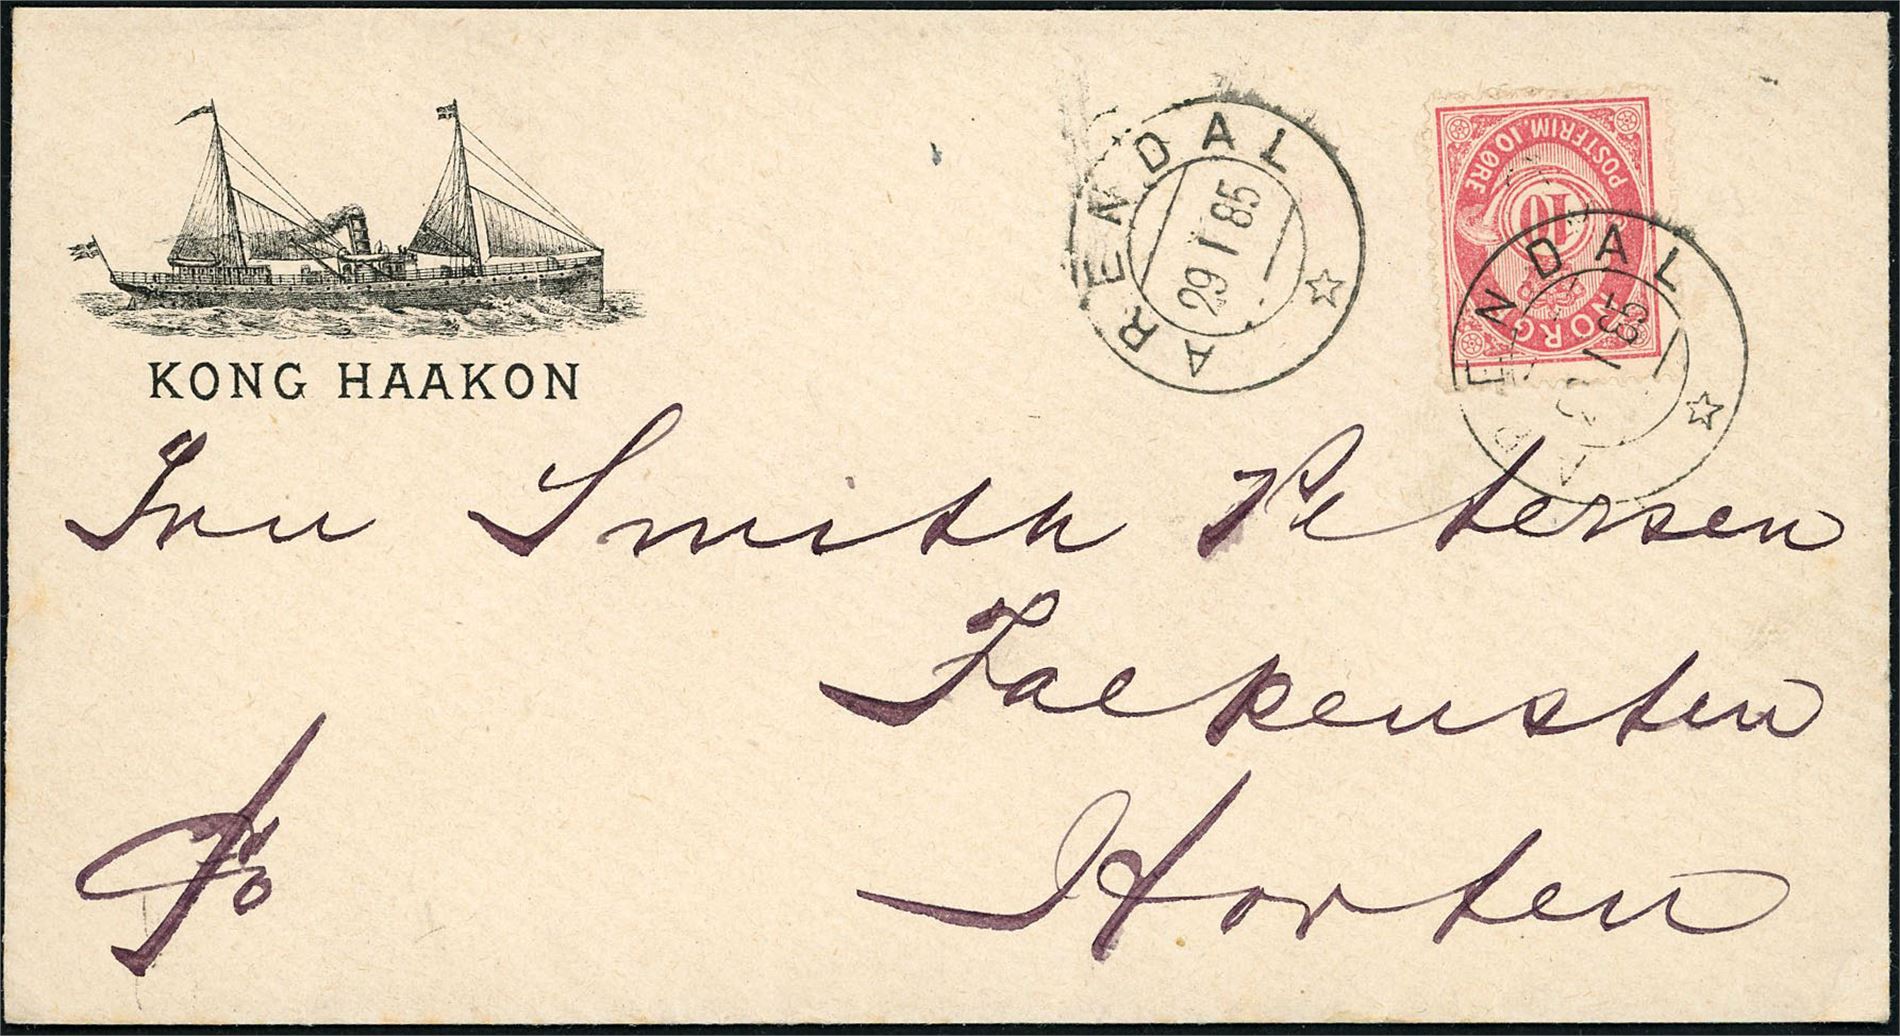 KONG HAAKON
ARENDAL
29 I 85
POSTFRIM. 10 ØRE
10
NORGE
ARENDAL
I 85
Smith Petersen
Falkensten
Horten